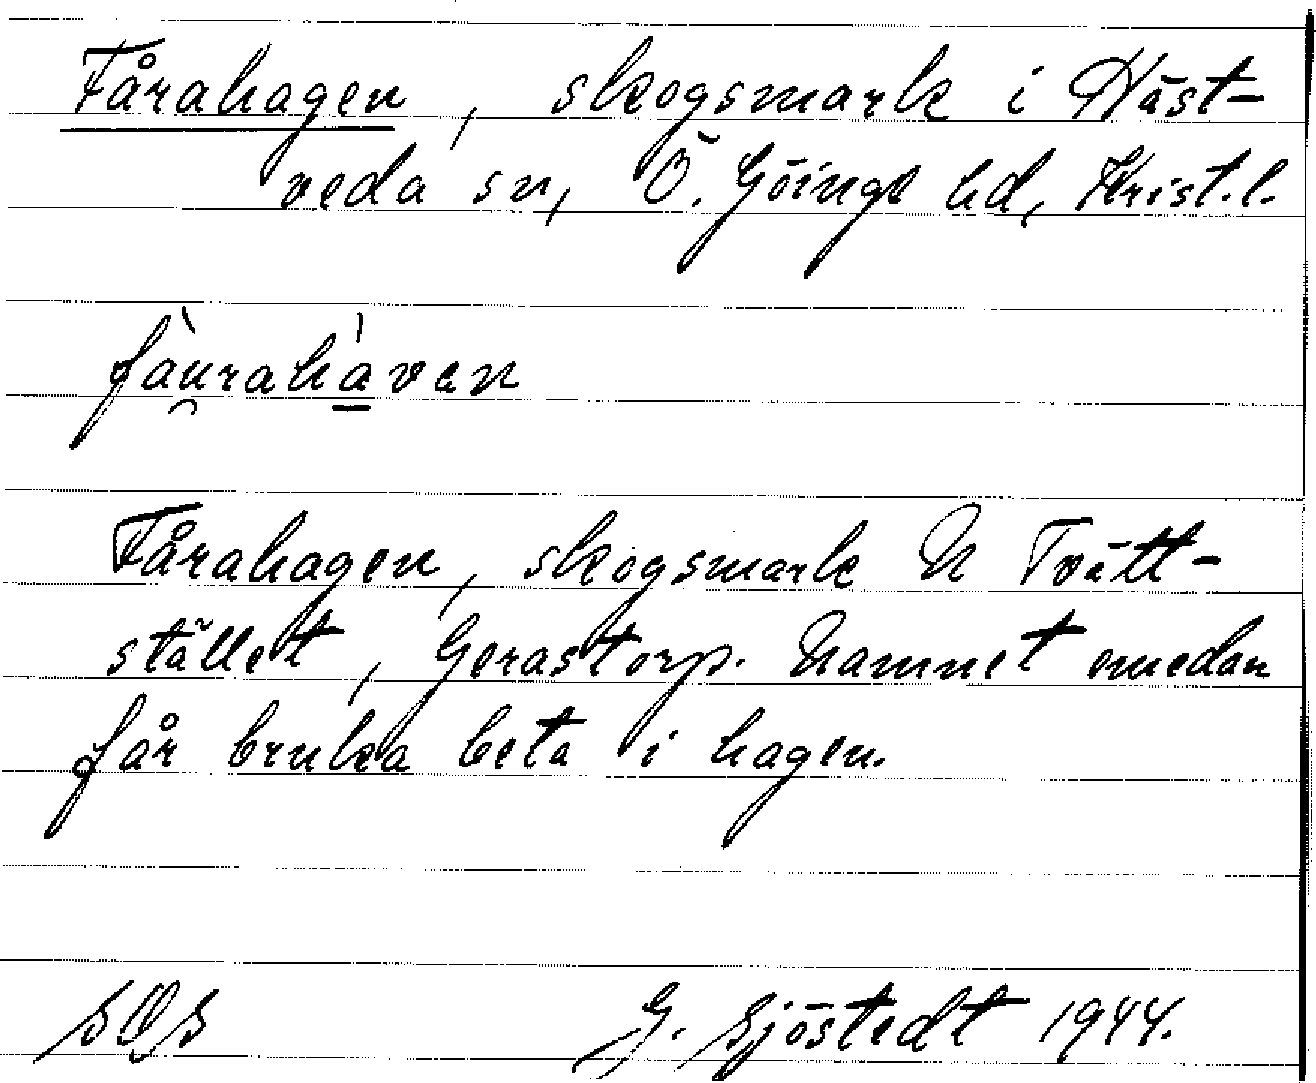 Fårahagen, skogsmark i Häst-
veda sn, Ö. Göinge hd, Krist.l.
fàu̯raha̲̍ven
Fårahagen, skogsmark N Tvätt-
stället, Gerastorp. Namnet emedan
får bruka beta i hagen.
SOS G. Sjöstedt 1944.